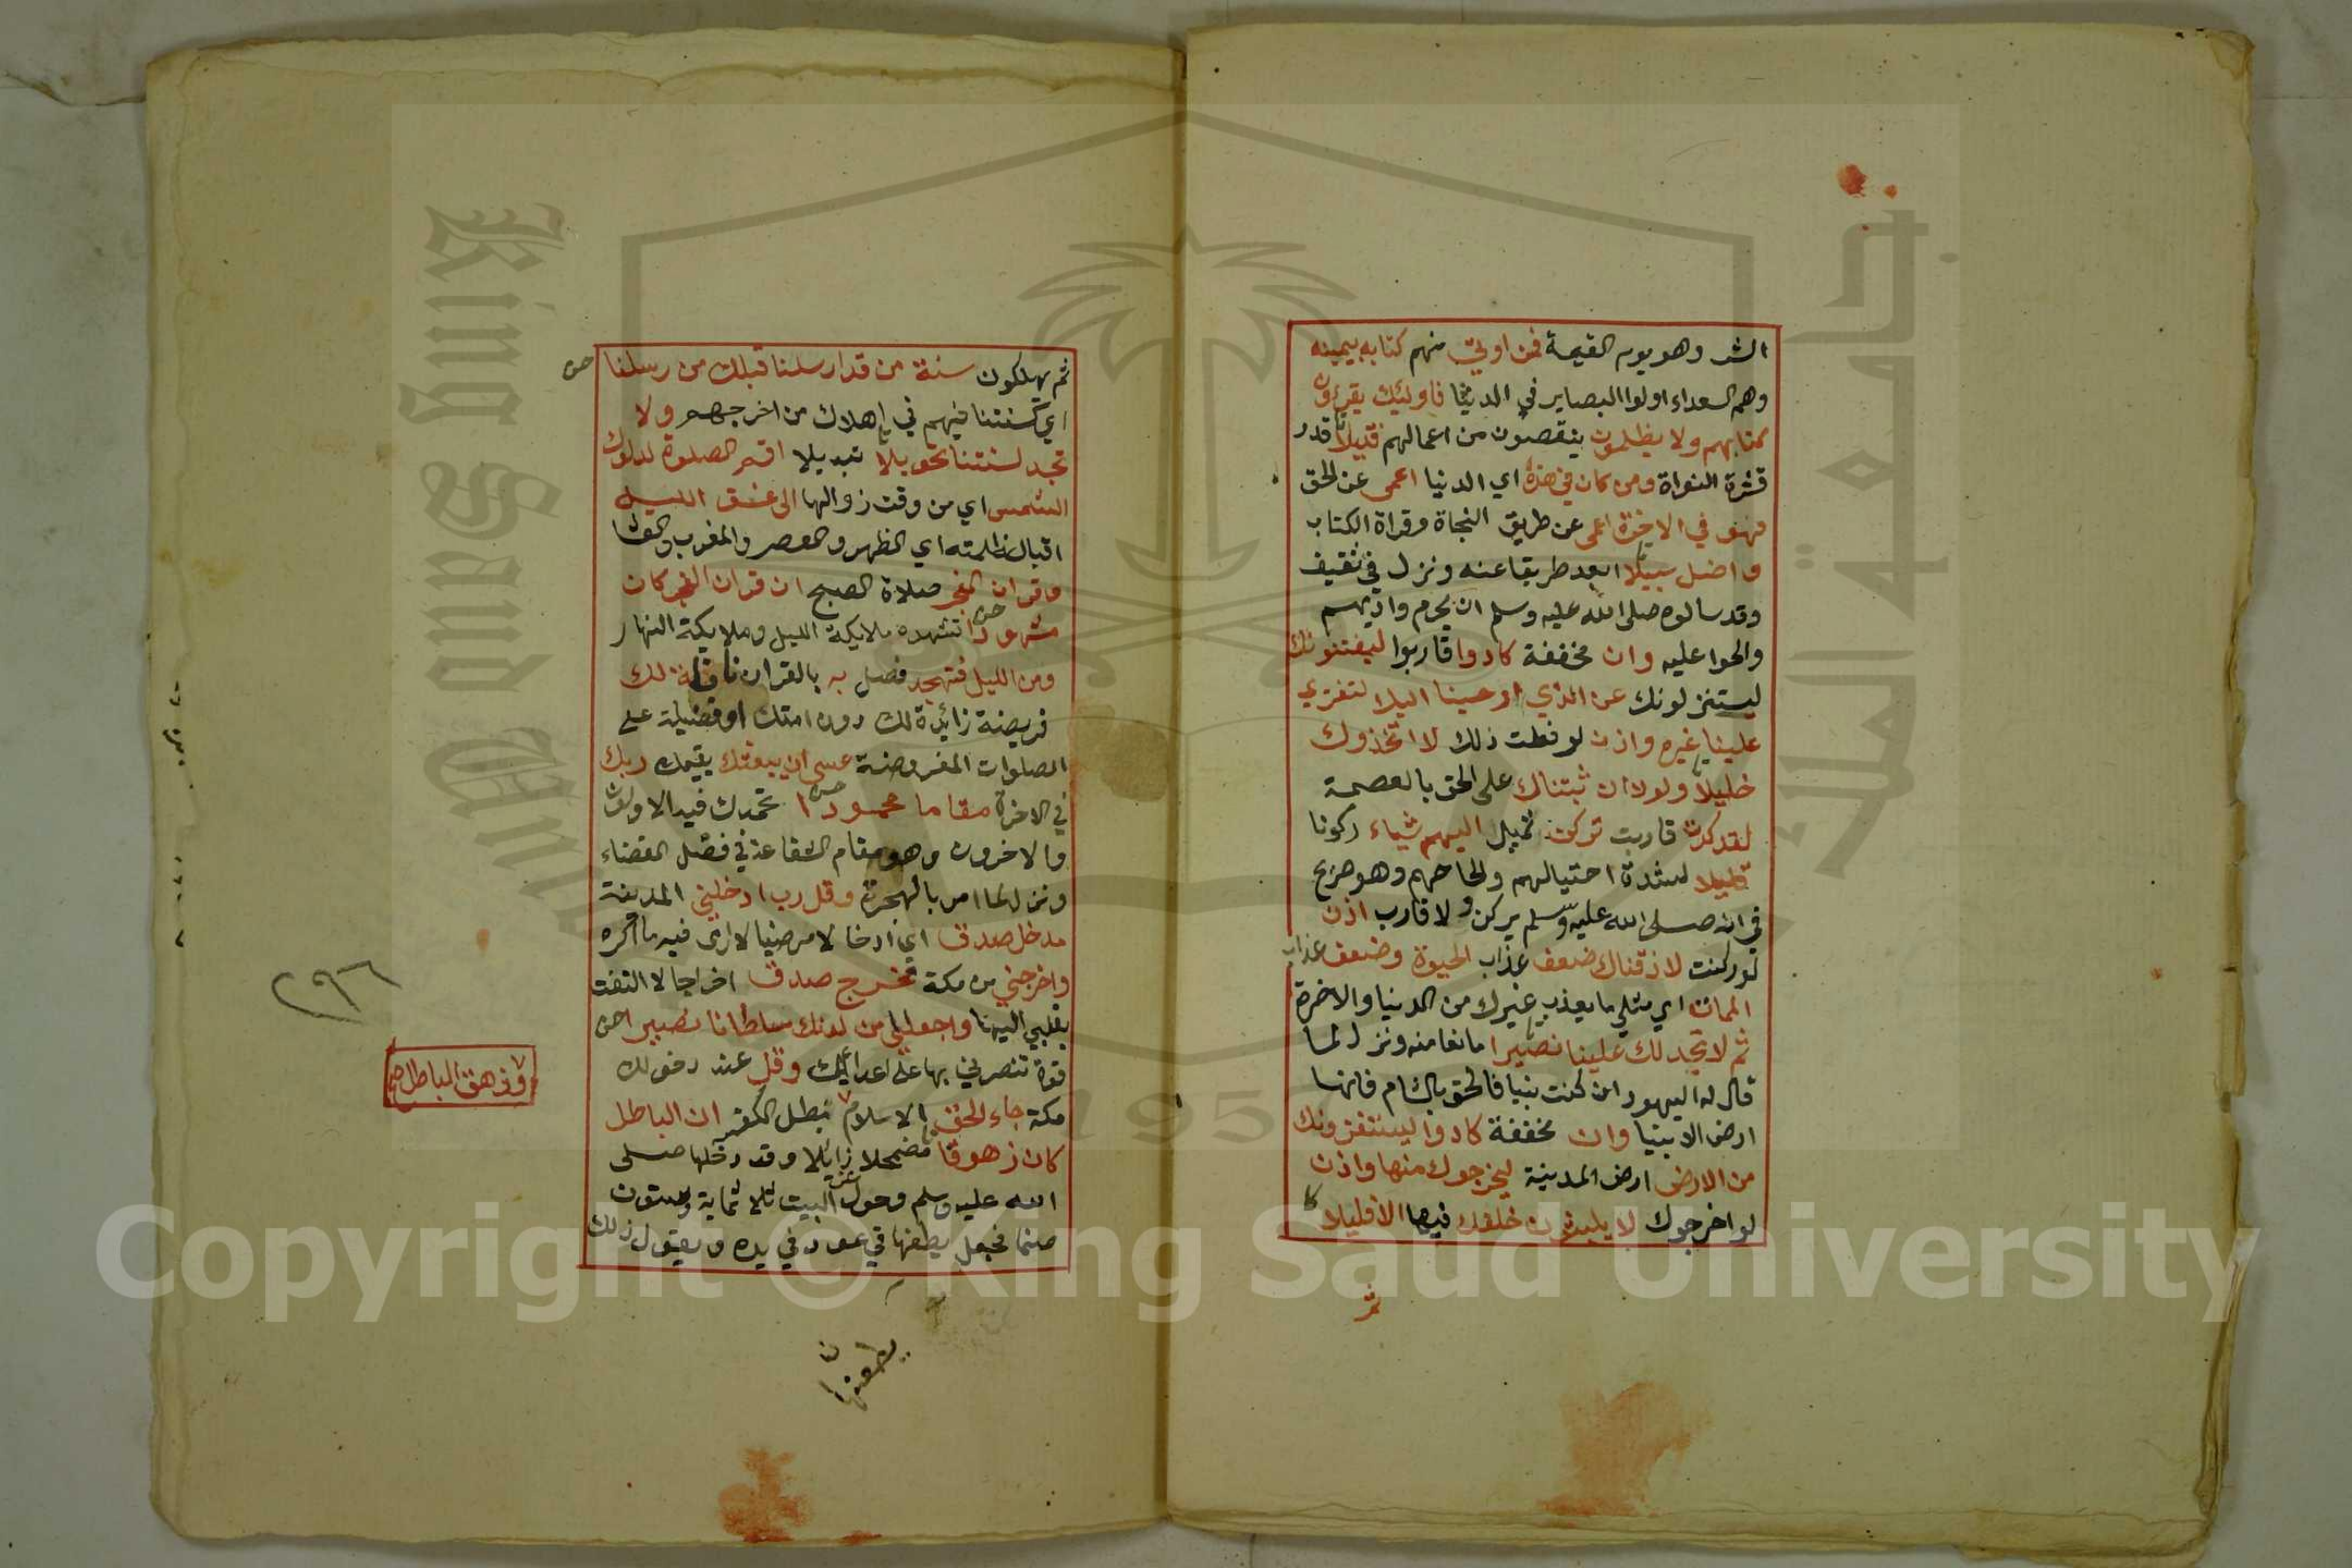 الشر وهو يوم القيمة فمن اوتي منهم كتابه بيمينه
وهم السعداء اولوا البصاير في الدنيا فاوليك يقرؤن
كتابهم ولا يظلمون ينقصون من اعمالهم فتيلا قدر
قشرة النواة ومن كان في هذه اي الدنيا اعمى عن الحق
فهو في الاخرة اعمى عن طريق النجاة وقراة الكتاب
واضل سبيلا ابعد طريقا عنه ونزل في ثقيف
وقد سالوه صلى الله عليه وسلم ان يحرم واديهم
والحوا عليه وان مخففة كادوا قاربوا ليفتنونك
ليستنزلونك عن الذي اوحينا اليك لتفتري
علينا غيره واذن لو فعلت ذلك لاتخذوك
خليلا ولولا ان ثبتناك على الحق بالعصمة
لقد كدت قاربت تركن تميل اليهم شياء ركونا
قليلا لشدة احتيالهم والحاحهم وهو صريح
في انه صلى الله عليه وسلم لم يركن ولا قارب اذن
لو ركنت لاذقناك ضعف عذاب الحيوة وضعف عذاب
الممات اي مثلي ما يعذب غيرك من الدنيا والاخرة
ثم لا تجد لك علينا نصيرا مانعا منه ونزل لما
قال له اليهود ان كنت نبيا فالحق بالشام فانها
ارض الانبيا وان مخففة كادوا ليستفزونك
من الارض ارض المدينة ليخرجوك منها واذن
لو اخرجوك لا يلبثون خلفك فيها الا قليلا
ثم
ثم يهلكون سنة من قد ارسلنا قبلك من رسلنا
اي كسنتنا فيهم في اهلاك من اخرجهم ولا
تجد لسنتنا تحويلا تبديلا اقم الصلوة لدلوك
الشمس اي من وقت زوالها الى غسق الليل
اقبال ظلمته اي الظهر والعصر والمغرب والعشا
وقران الفجر صلاة الصبح ان قران الفجر كان
مشهودا تشهده ملايكة الليل وملايكة النهار
ومن الليل فتهجد فصل به بالقران نافلة لك
فريضة زائدة لك دون امتك او فضيلة على
الصلوات المفروضة عسى ان يبعثك يقيمك ربك
في الاخرة مقاما محمودا تحمدك فيه الاولون
والاخرون وهو مقام الشفاعة في فصل القضاء
ونزل لما امر بالهجرة وقل رب ادخلني المدينة
مدخل صدق اي ادخالا مرضيا لا ارى فيه ما اكره
واخرجني من مكة مخرج صدق اخراجا لا التفت
بقلبي اليها واجعل لي من لدنك سلطانا نصيرا
قوة تنصرني بها على اعدايك وقل عند دخولك
مكة جاء الحق الاسلام بطل الكفر ان الباطل
كان زهوقا مضمحلا زايلا وقد دخلها صلى
الله عليه وسلم وحول البيت ثلاثماية وستون
صنما فجعل يطعنها في عود في يده ويقول ذلك
يطعنها
٢٩٦
وزهق الباطل صح
Copyright © King Saud University
King Saud University
جامعة الملك
195